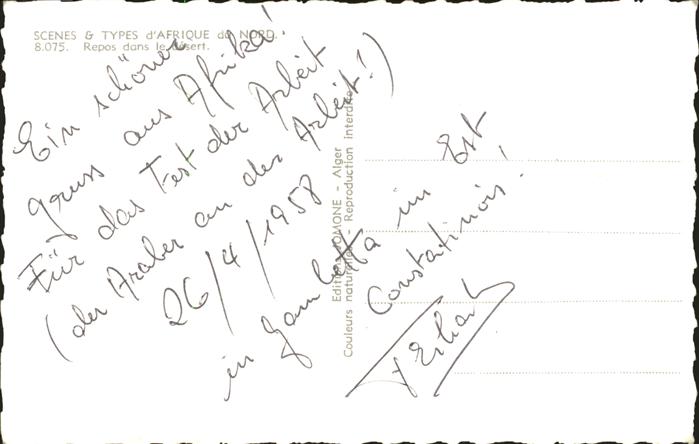 SCENES & TYPES d'AFRIQUE du NORD.
8.075. Repos dans le désert.
Ein schöner
gruss aus Afrika!
Für das Fest der Arbeit
(der Araber an der Arbeit!)
26/4/1958
in Gambetta im Est
Constantinois!
Editions JOMONE - Alger
Couleurs naturelles - Reproduction interdite